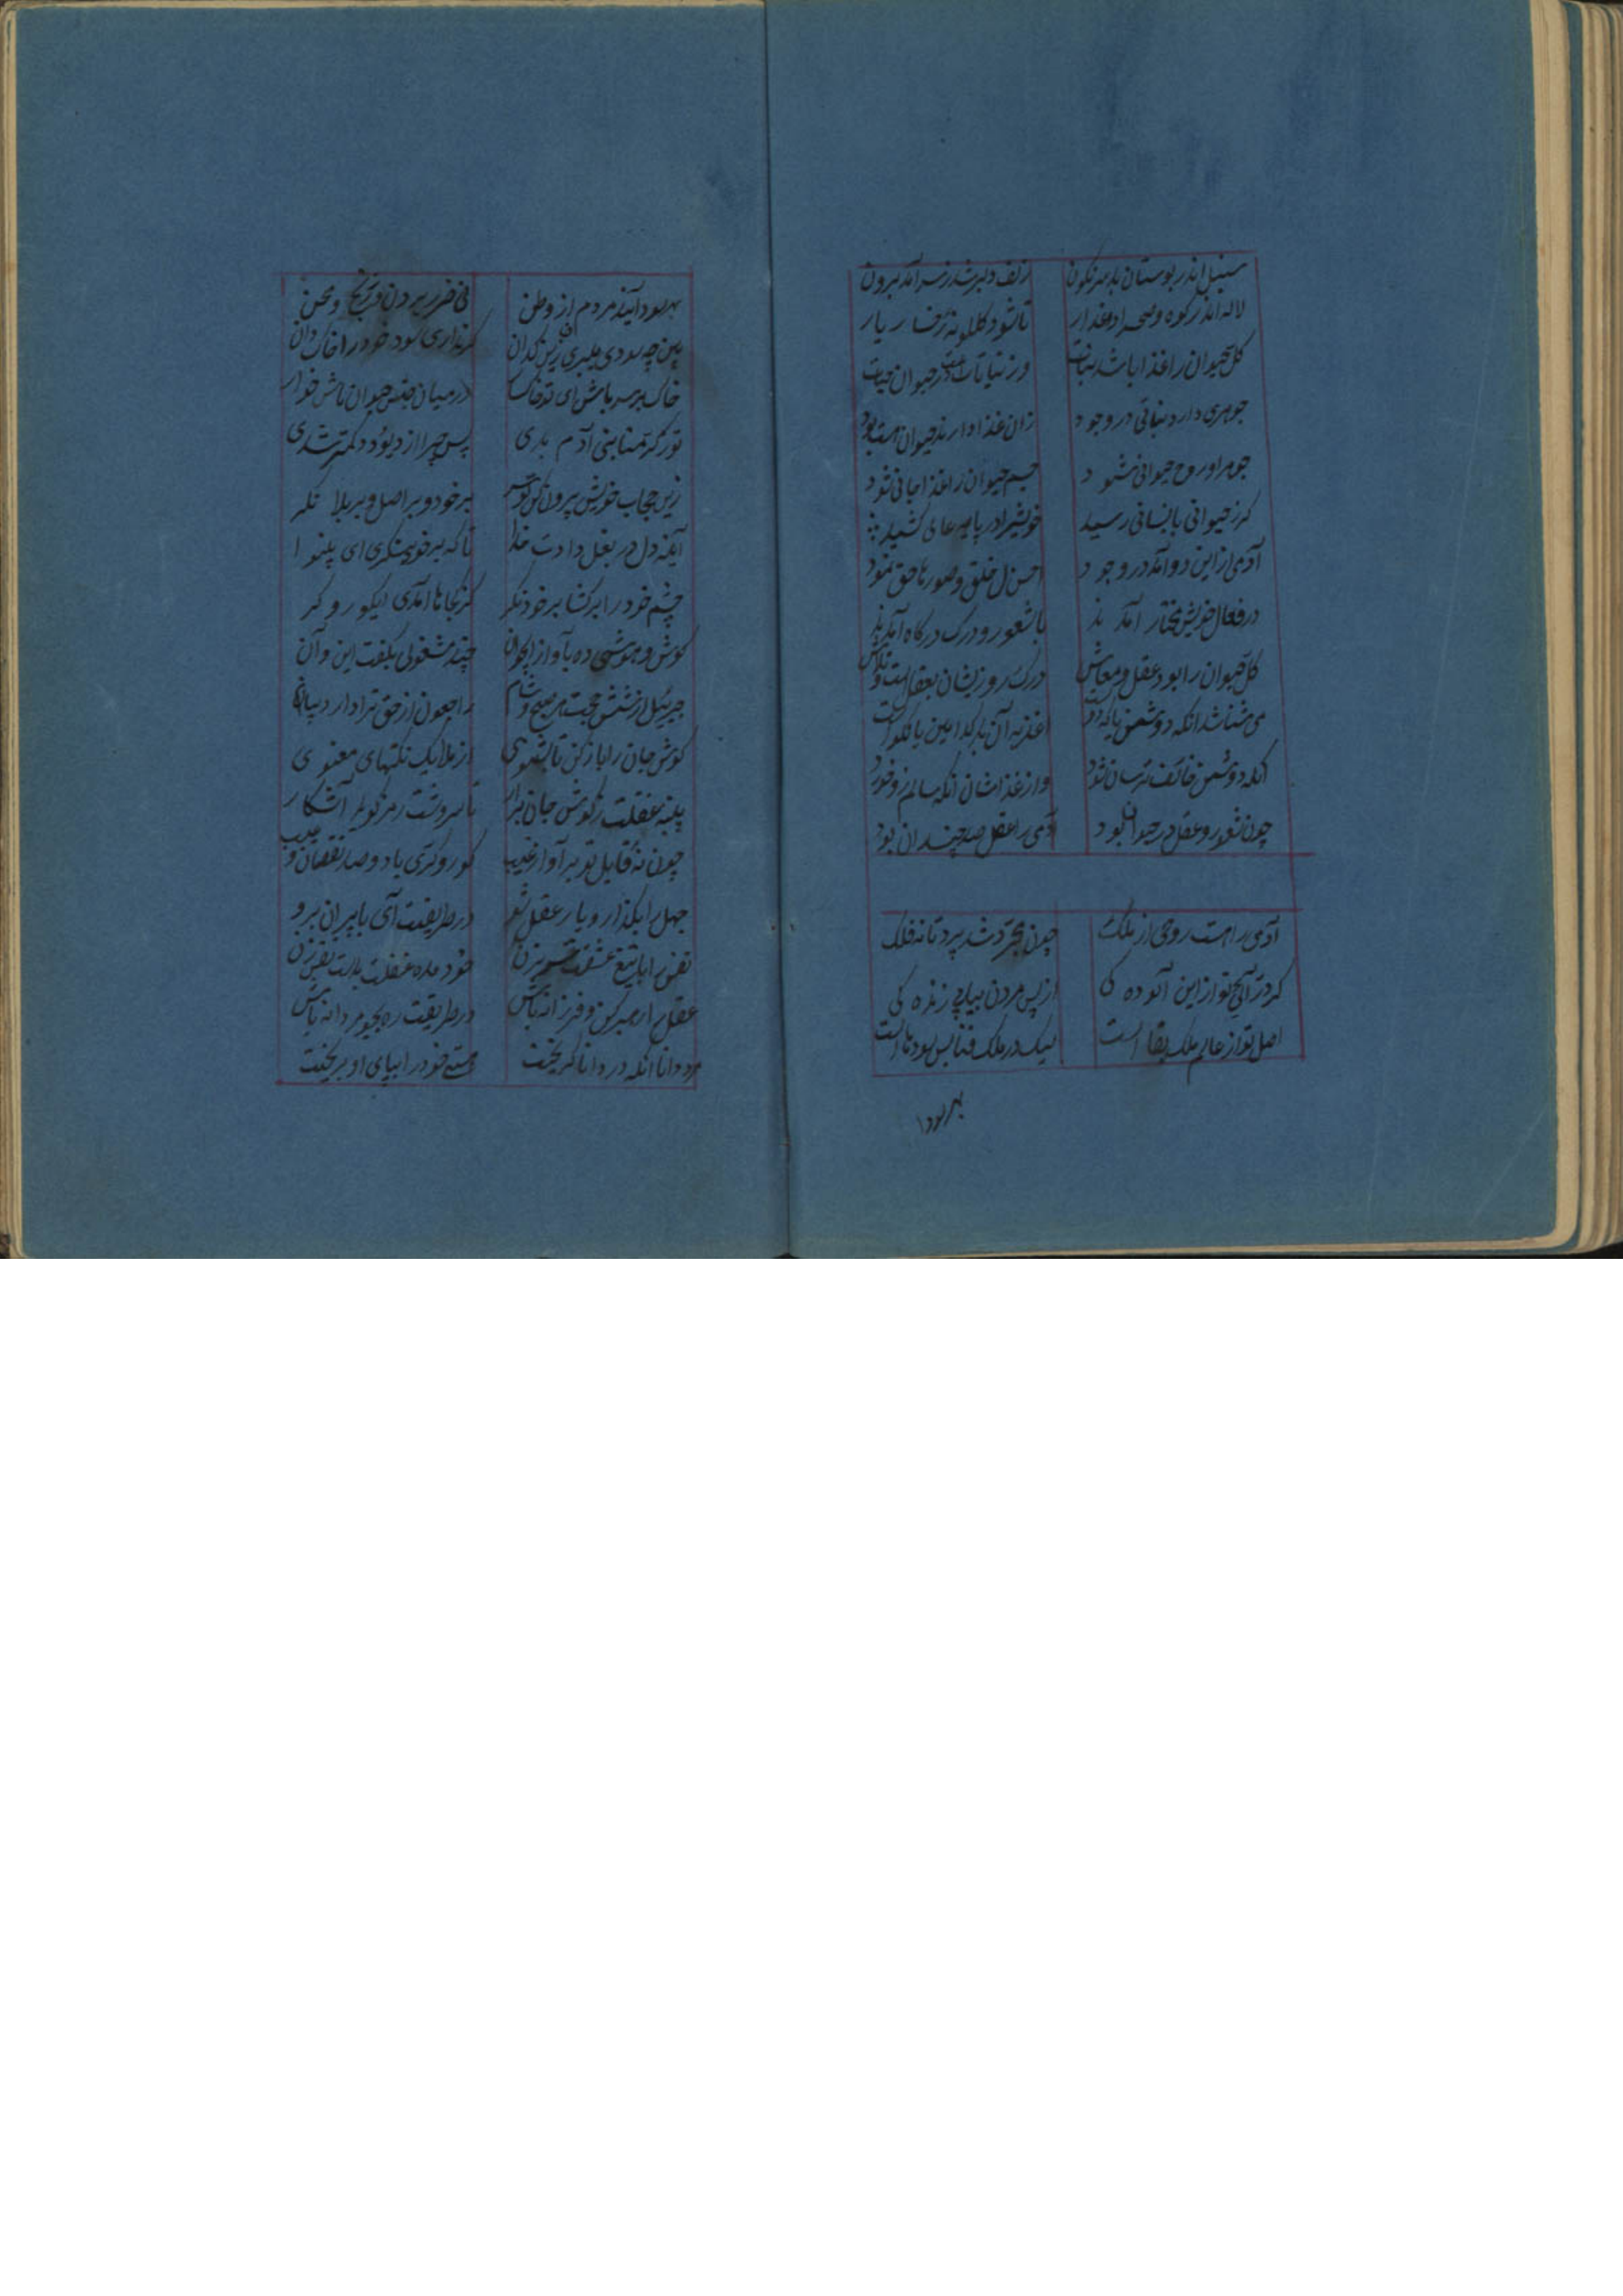 سنبل اندر بوستان بد سرنگون زلف دلبر شد ز سر آمد برون
لاله اندر کوه و صحرا و عذار تا شود گلگونه رخسار یار
کل حیوان را غذا باشد نبات ور نباتات در حیوان حیات
جوهری دارد نباتی در وجود زان غذا دارند حیوان هست بود
جوهر او روح حیوانی شود جسم حیوان را غذا جانی شود
کز حیوانی بانسانی رسید خویش را در پایه عالی کشید
آدمی از این دو آمد در وجود احسن الخلق و صور تا حق نمود
در فعال خویش مختار آمدند با شعور و درک در کاه آمدند
کل حیوان را بود عقل و معاش درک روزیشان بعقلست و تلاش
می شناسد آنکه دشمن یا که دوست اغذیه آن بد کدامین یا نکوست
آنکه دشمن خائف و ترسان شود واز غذاشان آنکه سالم زو خورد
چون شعور و عقل در حیوان بود آدمی را عقل صد چندان بود
آدمی را هست روحی از ملک چون مجرد شد پرد تا نه فلک
کر در آئی تو از این آلوده کی از پس مردن بیابی زنده کی
اصل تو از عالم ملک بقا است لیک در ملک فنا بس سودها است
بهر سودا
بهر سود آیند مردم از وطن نی ضرر بردن و رنج و محن
پس چه سودی میبری زین کدان کر نداری سود خود را خاک دان
خاک بر سر باش ای تو خاک در میان جنس حیوان باش خوار
تو کر کرمنا بنی آدم بدی پس چرا از دیو و دد کمتر شدی
زین حجاب خویش بیرون کن تو سر بر خود و بر اصل و بر بالا نگر
آینه دل در بغل دادت خدا تا که بر خود بنگری ای بینوا
چشم خود را بر کشا بر خود نگر کز کجاها آمدی نیکو رو کر
کوش و هوشی ده بآواز چند مشغولی بگفت این و آن
جبرئیل از شش جهت هر صبح و شام راجعون از حق ترا دارد پیام
کوش جان را باز کن تا بشنوی از ملایک نکتهای معنوی
پنبه غفلت ز کوش جان برار تا سروشت رمز کوید آشکار
چون نهٔ قابل تو بر آواز غیب کور و کری با دو صد نقصان و عیب
جهل را بگذار و یار عقل شو در طریقت آی با پیران برو
نفس را با تیغ عشقت بزن خود ماده غفلت بدست نفس زن
عقل را رهبر کن و فرزانه باش در طریقت ره بجو مردانه باش
مرد دانا آنکه در دانا کریخت هستی خود را بپای او بریخت